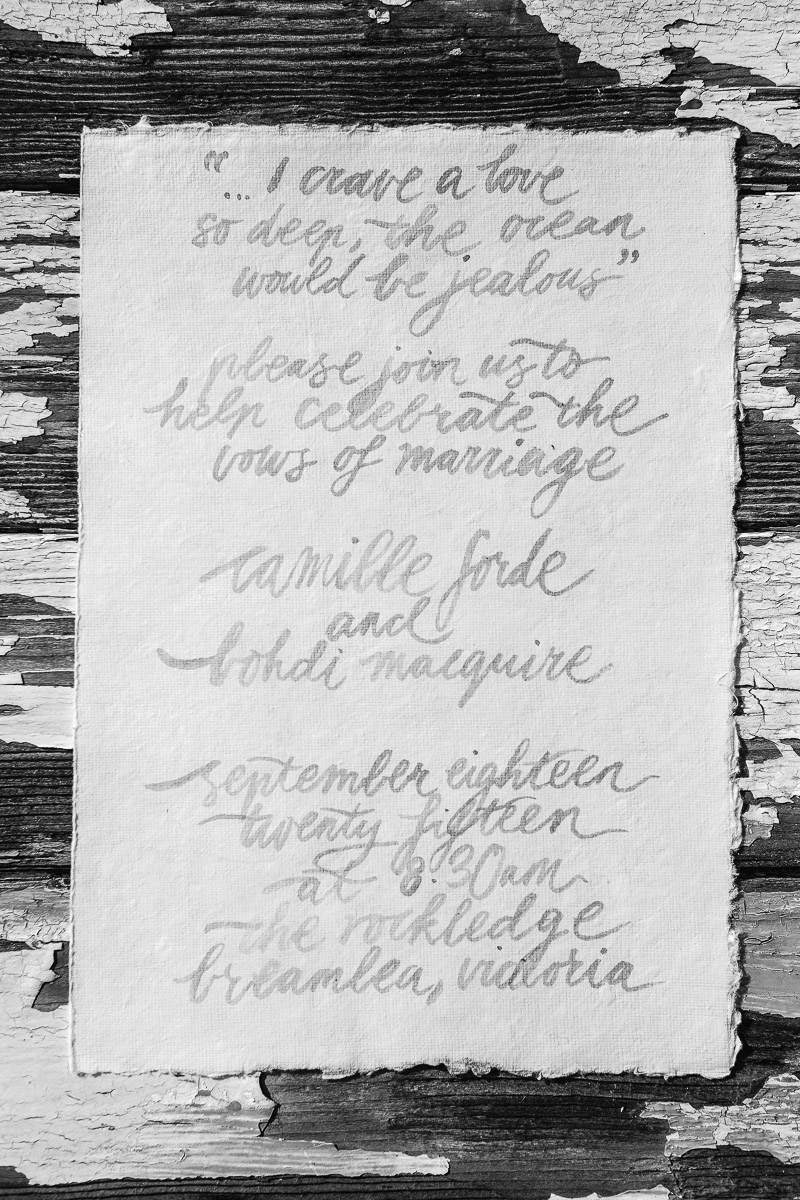 "... I crave a love
so deep, the ocean
would be jealous"
please join us to
help celebrate the
vows of marriage
camille forde
and
bohdi macquire
september eighteen
twenty fifteen
at 8:30am
the rockledge
breamlea, victoria